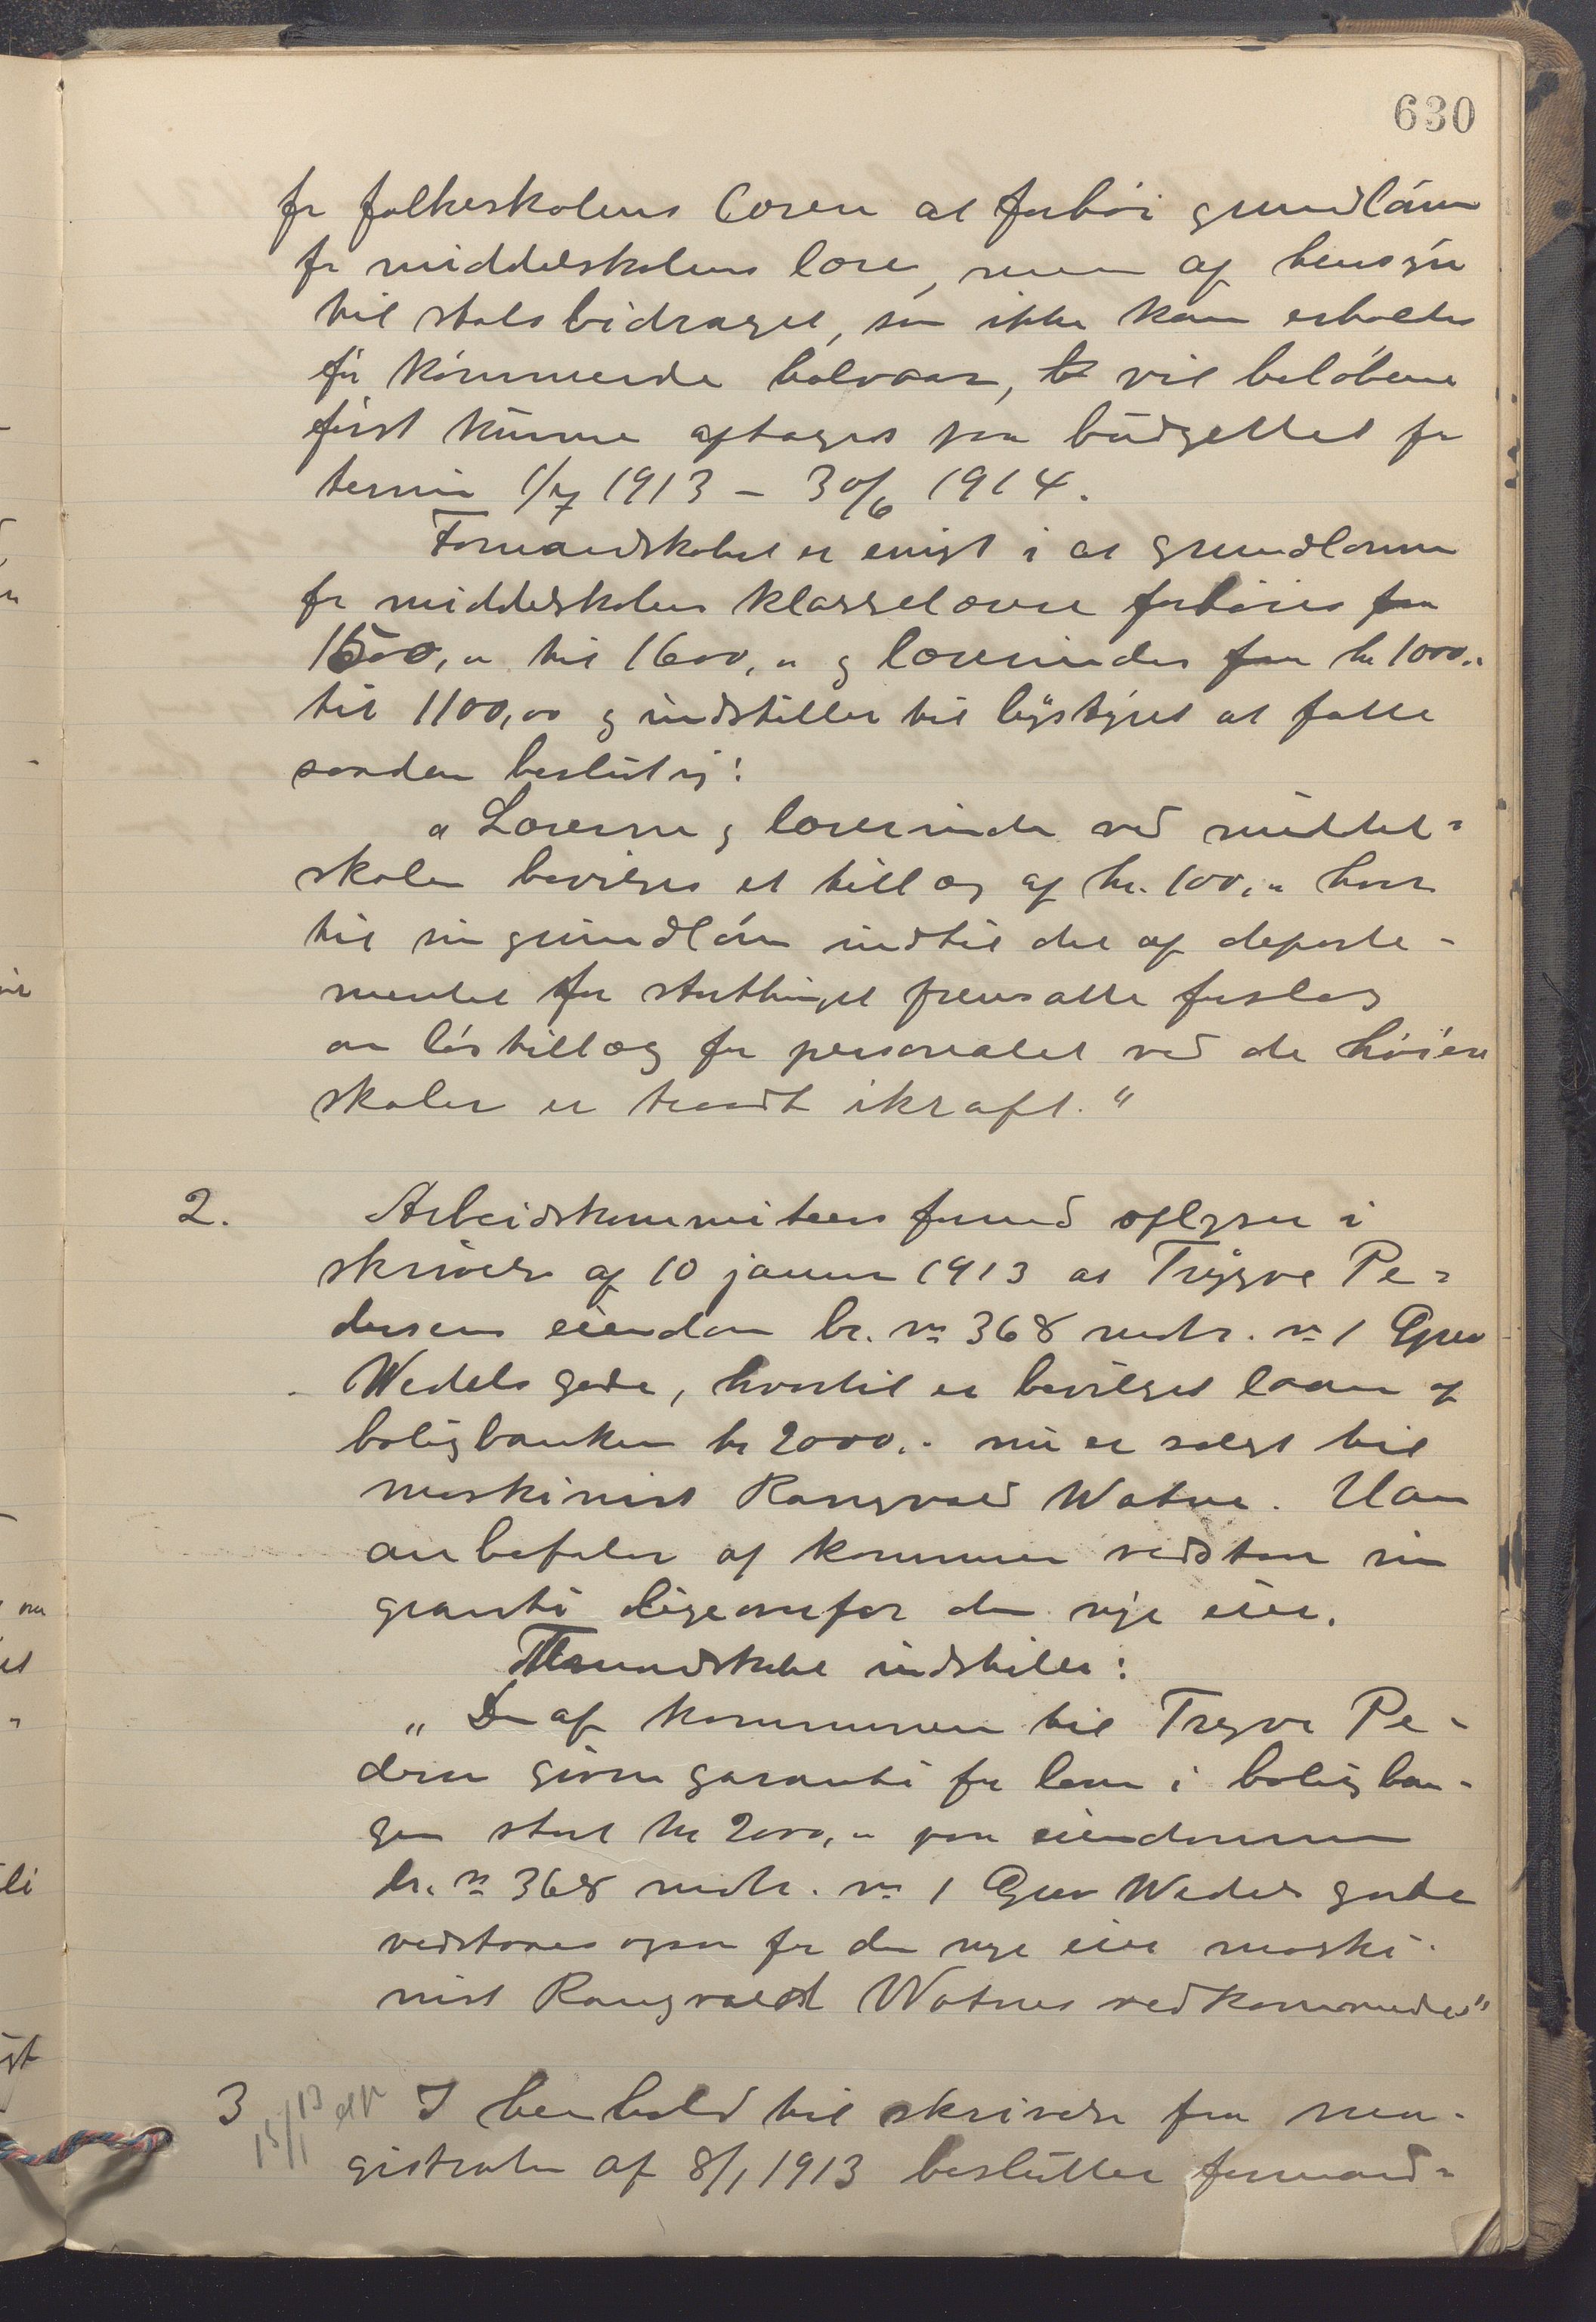 630
for folkeskolens lærere at forhøie grundlønn
for middelskolens lærere, men af hensyn
til statsbidraget, som ikke kan erholdes
for kommende halvaar, vil beløbene
først kunne optages paa budgettet for
termin 1/7 1913 – 30/6 1914.
Formandskabet er enigt i at grundlønnen
for middelskolens klasselærere forhøies fra
1500,„ til 1600,„ og lærerinder fra kr 1000.„
til 1100,00 og indstiller til bystyret at fatte
saadan beslutning:
„Lærerne og lærerinder ved middel-
skolen bevilges et tillæg af kr. 100,„ hver
til sin grundløn indtil det af departe-
mentet for storthinget fremsatte forslag
om løstillæg for personalet ved de høiere
skoler er traadt ikraft.“
2. Arbeidskommiteens formand oplyser i
skrivelse af 10 januar 1913 at Trygve Pe-
dersens eiendom br. no 368 matr. no 1 Grev
Wedels gade, hvortil er bevilget laan af
boligbanken kr 2000.- nu er solgt til
maskinist Rangvald Watne. Man
anbefaler at kommunen vedstaar sin
garanti ligeoverfor den nye eier.
Formandskabet indstiller:
„Den af kommunen til Trygve Pe-
dersen givne garanti for laan i boligban-
ken stort kr 2000,„ paa eiendommen
br. no 368 matr. no 1 Grev Wedels gade
vedstaaes ogsaa for den nye eier maski-
nist Rangvald Watnes vedkommende“
3 15/1 13 I henhold til skrivelse fra ma-
gistraten af 8/1 1913 beslutter formand-